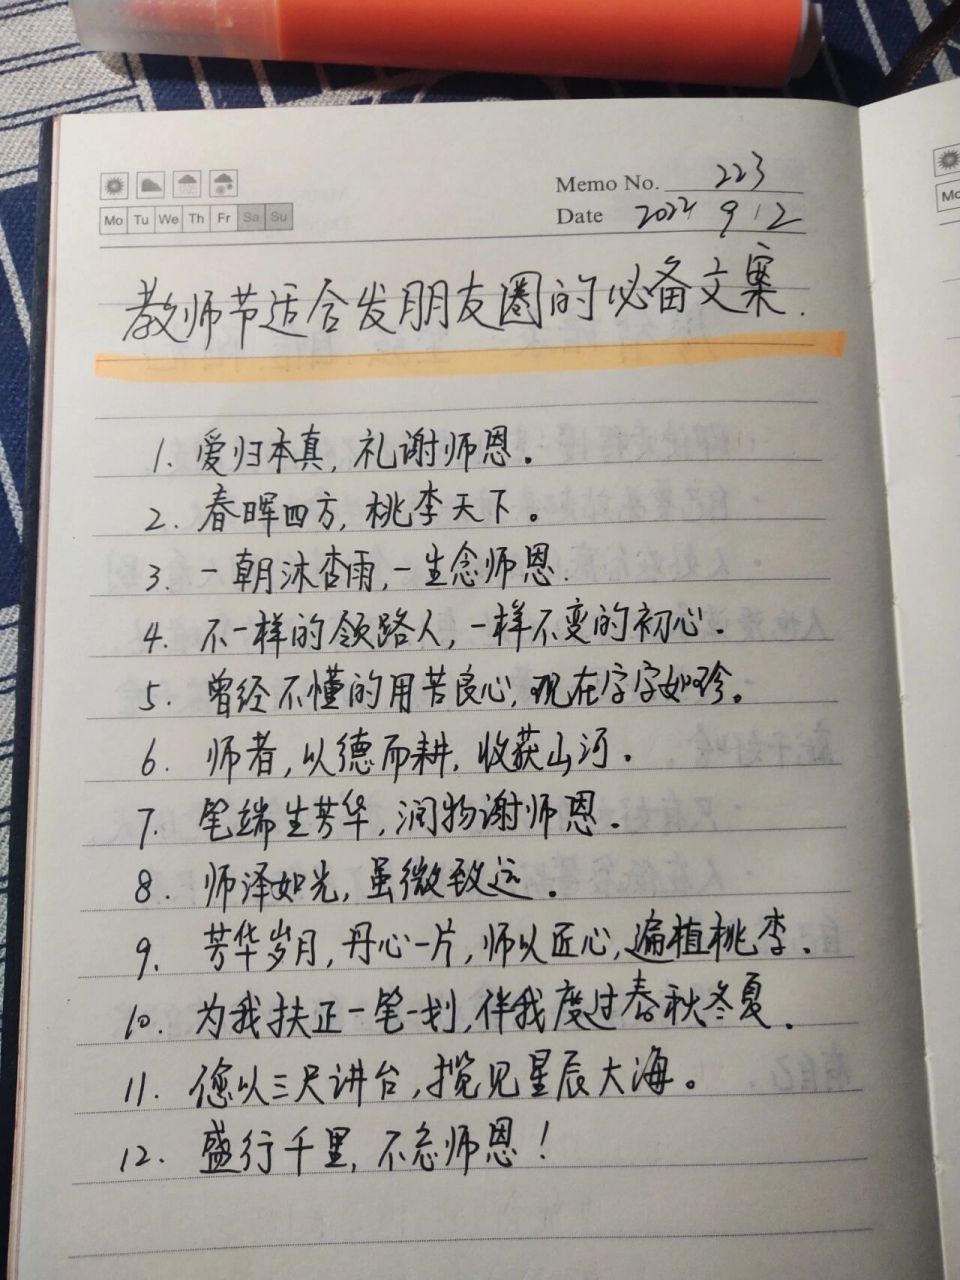 Memo No. 223
Mo Tu We Th Fr Sa Su
Date 2022 9 12
教师节适合发朋友圈的必备文案.
1. 爱归本真, 礼谢师恩。
2. 春晖四方, 桃李天下。
3. 一朝沐杏雨, 一生念师恩.
4. 不一样的领路人, 一样不变的初心.
5. 曾经不懂的用苦良心, 现在字字如珍。
6. 师者, 以德而耕, 收获山河.
7. 笔端生芳华, 润物谢师恩.
8. 师泽如光, 虽微致远.
9. 芳华岁月, 丹心一片, 师以匠心, 遍植桃李.
10. 为我扶正一笔一划, 伴我度过春秋冬夏.
11. 您以三尺讲台, 揽见星辰大海。
12. 盛行千里, 不忘师恩!